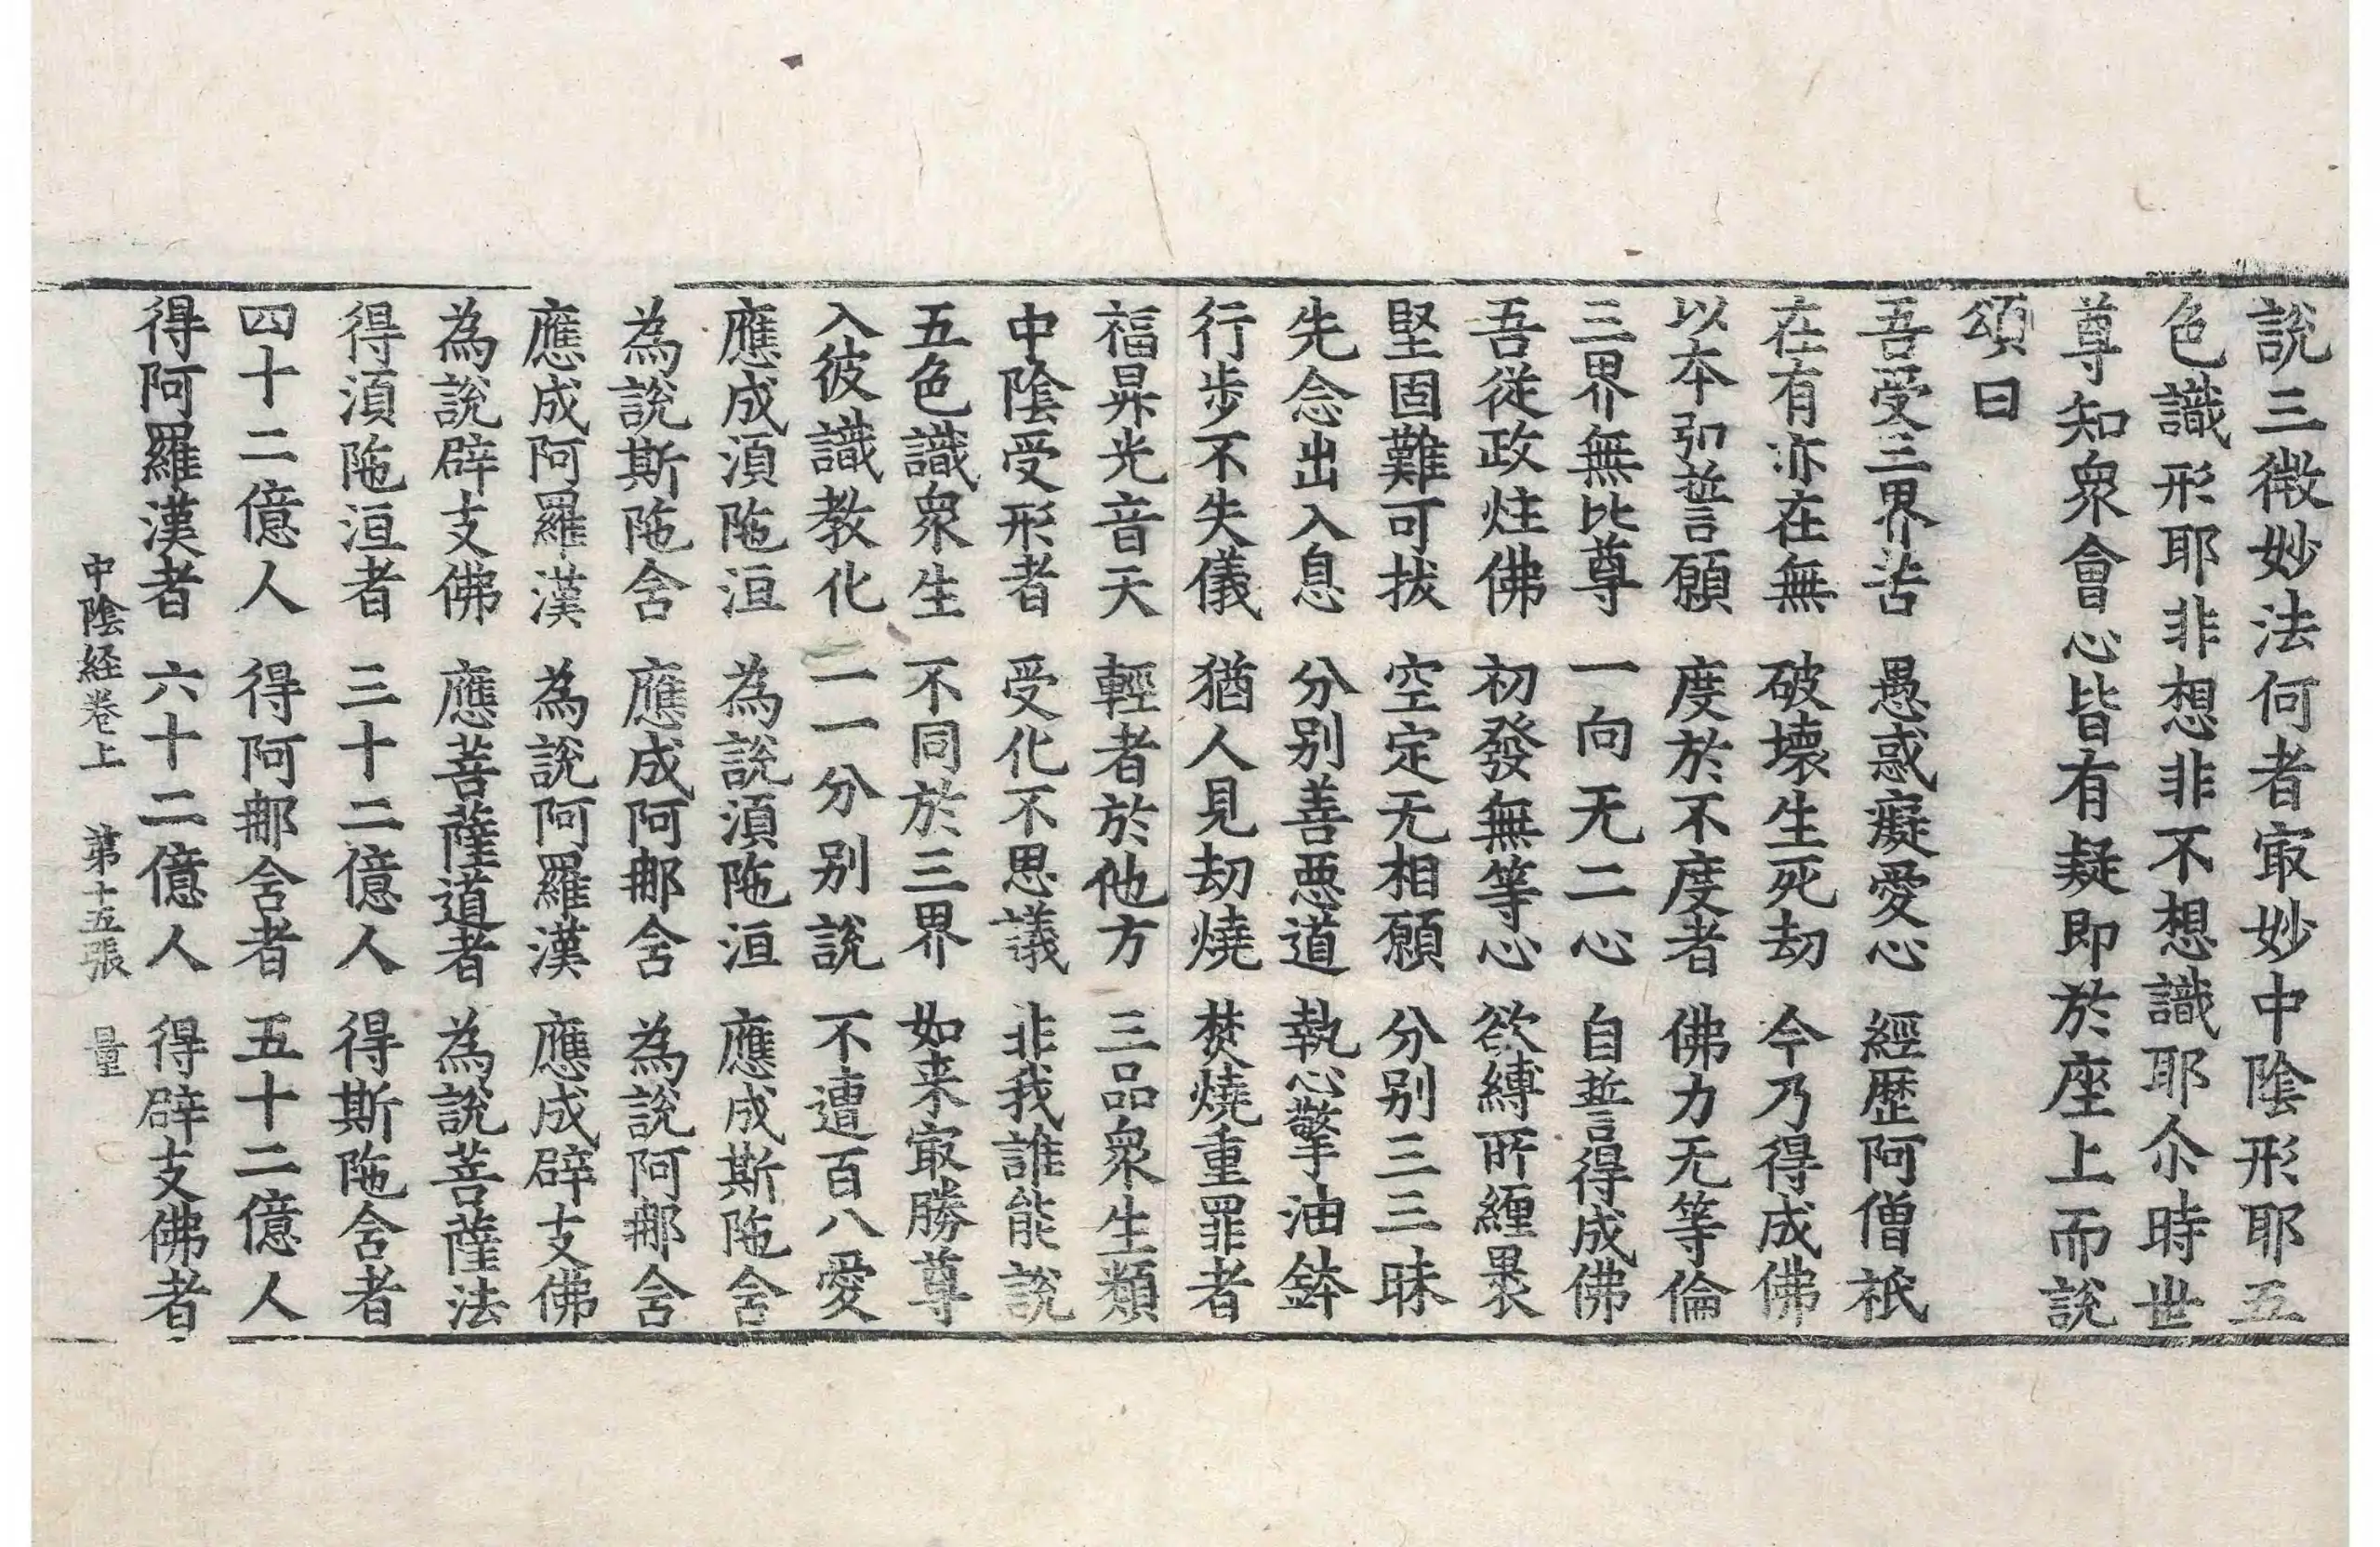 說三微妙法何者㝡妙中陰形耶五
色識形耶非想非非不想識耶尒時世
尊知衆會心皆有疑即於座上而說
頌曰
吾受三界苦 愚惑癡愛心 經歷阿僧祇
在有亦在無 破壞生死劫 今乃得成佛
以本弘誓願 度於不度者 佛力无等倫
三界無比尊 一向无二心 自誓得成佛
吾從政炷佛 初發無等心 欲縛所纏裹
堅固難可拔 空定无相願 分別三三昧
先念出入息 分別善惡道 執心擎油鉢
行步不失儀 猶人見劫燒 焚燒重罪者
福昇光音天 輕者於他方 三品衆生類
中陰受形者 受化不思議 非我誰能說
五色識衆生 不同於三界 如来㝡勝尊
入彼識教化 一一分別說 不遭百八愛
應成湏陁洹 為說湏陁洹 應成斯陁含
為說斯陁含 應成阿那含 為說阿那含
應成阿羅漢 為說阿羅漢 應成辟支佛
為說辟支佛 應菩薩道者 為說菩薩法
得湏陁洹者 三十二億人 得斯陁含者
四十二億人 得阿那含者 五十二億人
得阿羅漢者 六十二億人 得辟支佛者
中陰経卷上 第十五張 量